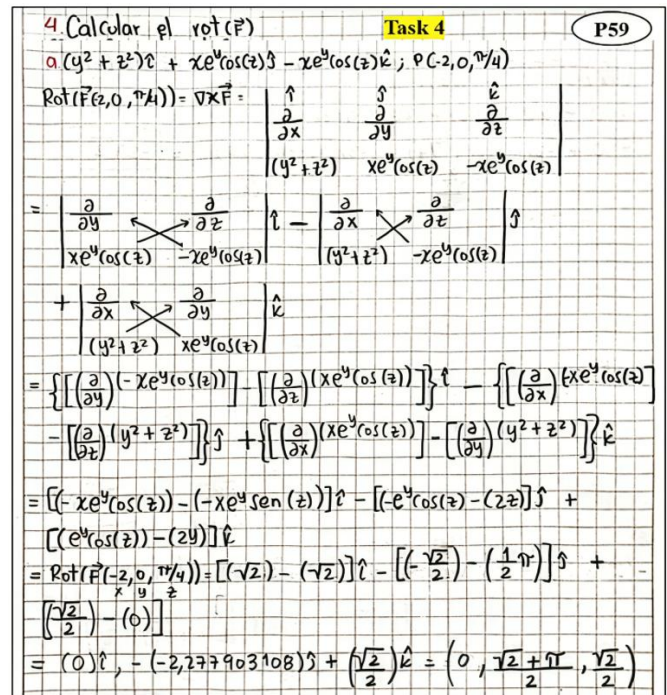 4. Calcular el rot(F⃗) Task 4 P59
a (y² + z²)î + xeʸcos(z)ĵ − xeʸcos(z)k̂ ; P(-2,0,π/4)
Rot(F⃗(-2,0,π/4)) = ∇×F⃗ = | î ĵ k̂
∂/∂x ∂/∂y ∂/∂z
(y²+z²) xeʸcos(z) −xeʸcos(z) |
= | ∂/∂y ∂/∂z | î − | ∂/∂x ∂/∂z | ĵ
| xeʸcos(z) −xeʸcos(z) | | (y²+z²) −xeʸcos(z) |
+ | ∂/∂x ∂/∂y | k̂
| (y²+z²) xeʸcos(z) |
= {[(∂/∂y)(−xeʸcos(z))] − [(∂/∂z)(xeʸcos(z))]}î − {[(∂/∂x)(−xeʸcos(z)]
− [(∂/∂z)(y²+z²)]}ĵ + {[(∂/∂x)(xeʸcos(z))] − [(∂/∂y)(y²+z²)]}k̂
= [(−xeʸcos(z)) − (−xeʸsen(z))]î − [(−eʸcos(z) − (2z)]ĵ +
[(eʸcos(z)) − (2y)]k̂
= Rot(F⃗(-2,0,π/4)) = [(√2) − (√2)]î − [(−√2/2) − (1/2 π)]ĵ +
x y z
[(√2/2) − (0)]
= (0)î, −(−2,277903108)ĵ + (√2/2)k̂ = (0, √2+π/2, √2/2)